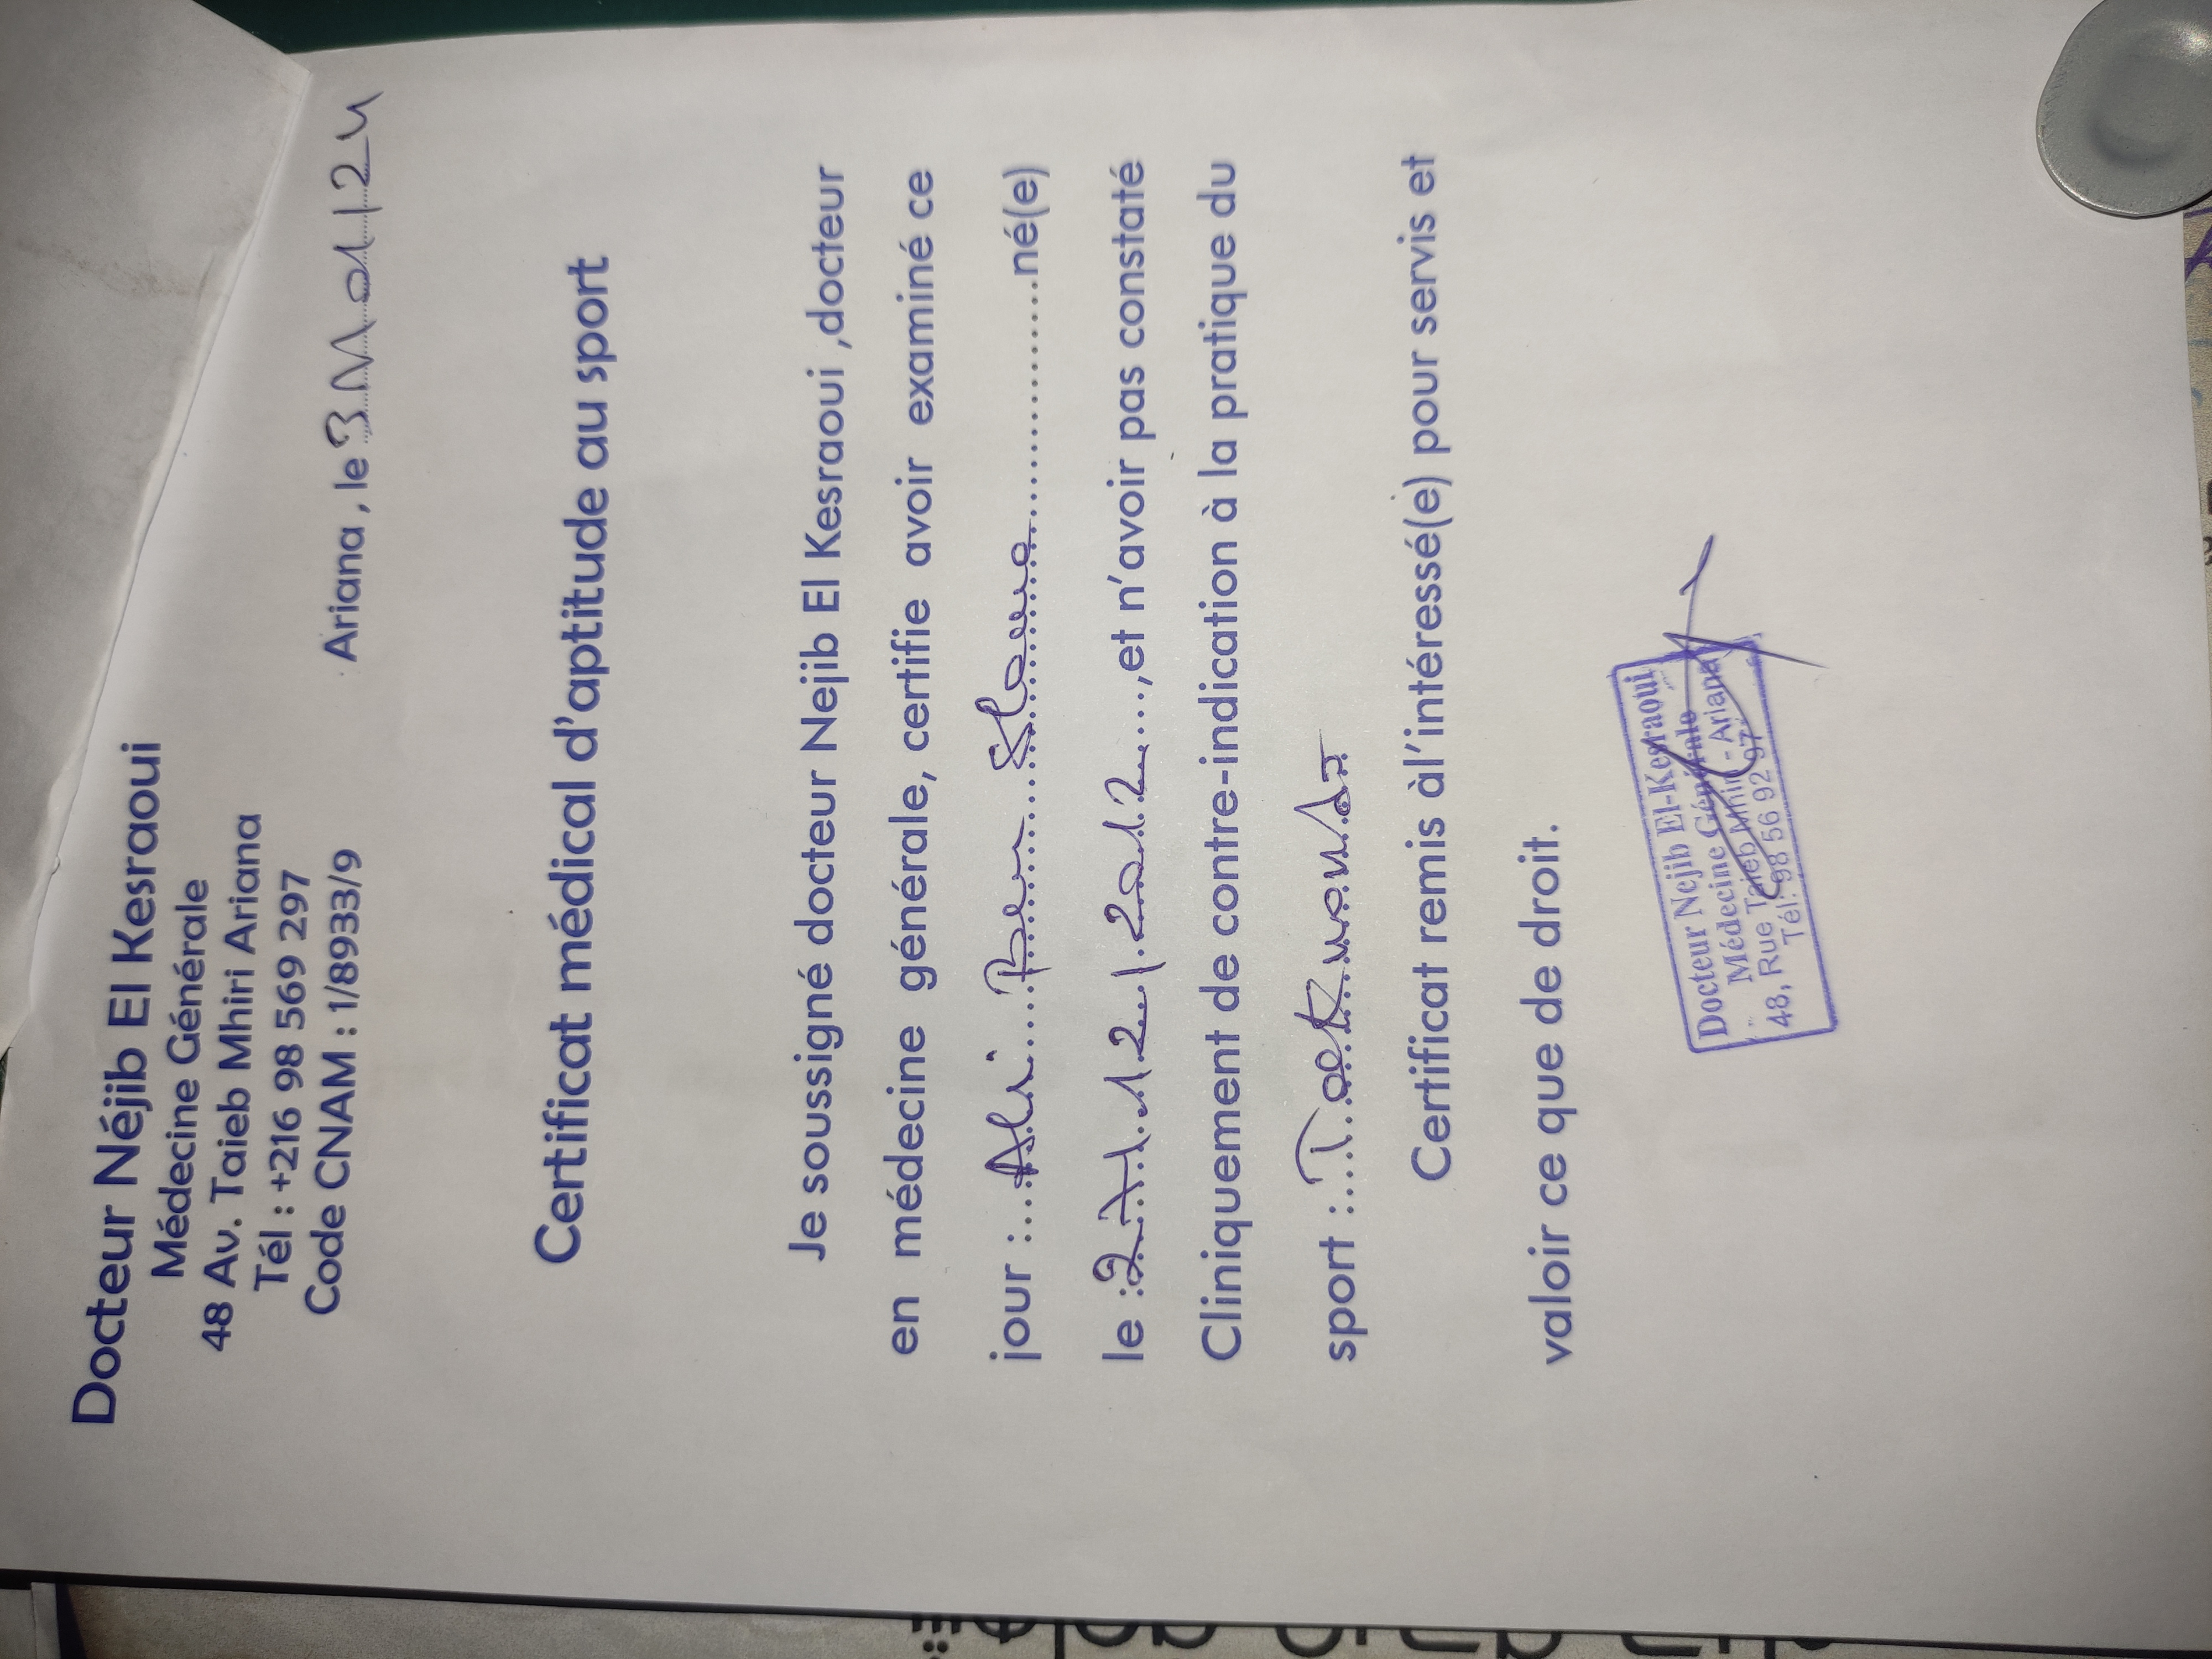 Docteur Néjib El Kesraoui
Médecine Générale
48 Av. Taieb Mhiri Ariana
Tél : +216 98 569 297
Code CNAM : 1/8933/9
Ariana , le
Certificat médical d'aptitude au sport
Je soussigné docteur Nejib El Kesraoui ,docteur
en médecine générale, certifie avoir examiné ce
jour :...Ali....Ben.... ..............né(e)
le :27/12/2012.....,et n'avoir pas constaté
Cliniquement de contre-indication à la pratique du
sport :..Taekwondo
Certificat remis àl'intéressé(e) pour servis et
valoir ce que de droit.
Docteur Nejib El-Kesraoui
Médecine Générale
48, Rue Taieb Mhiri - Ariana
Tél.: 98 56 92 97